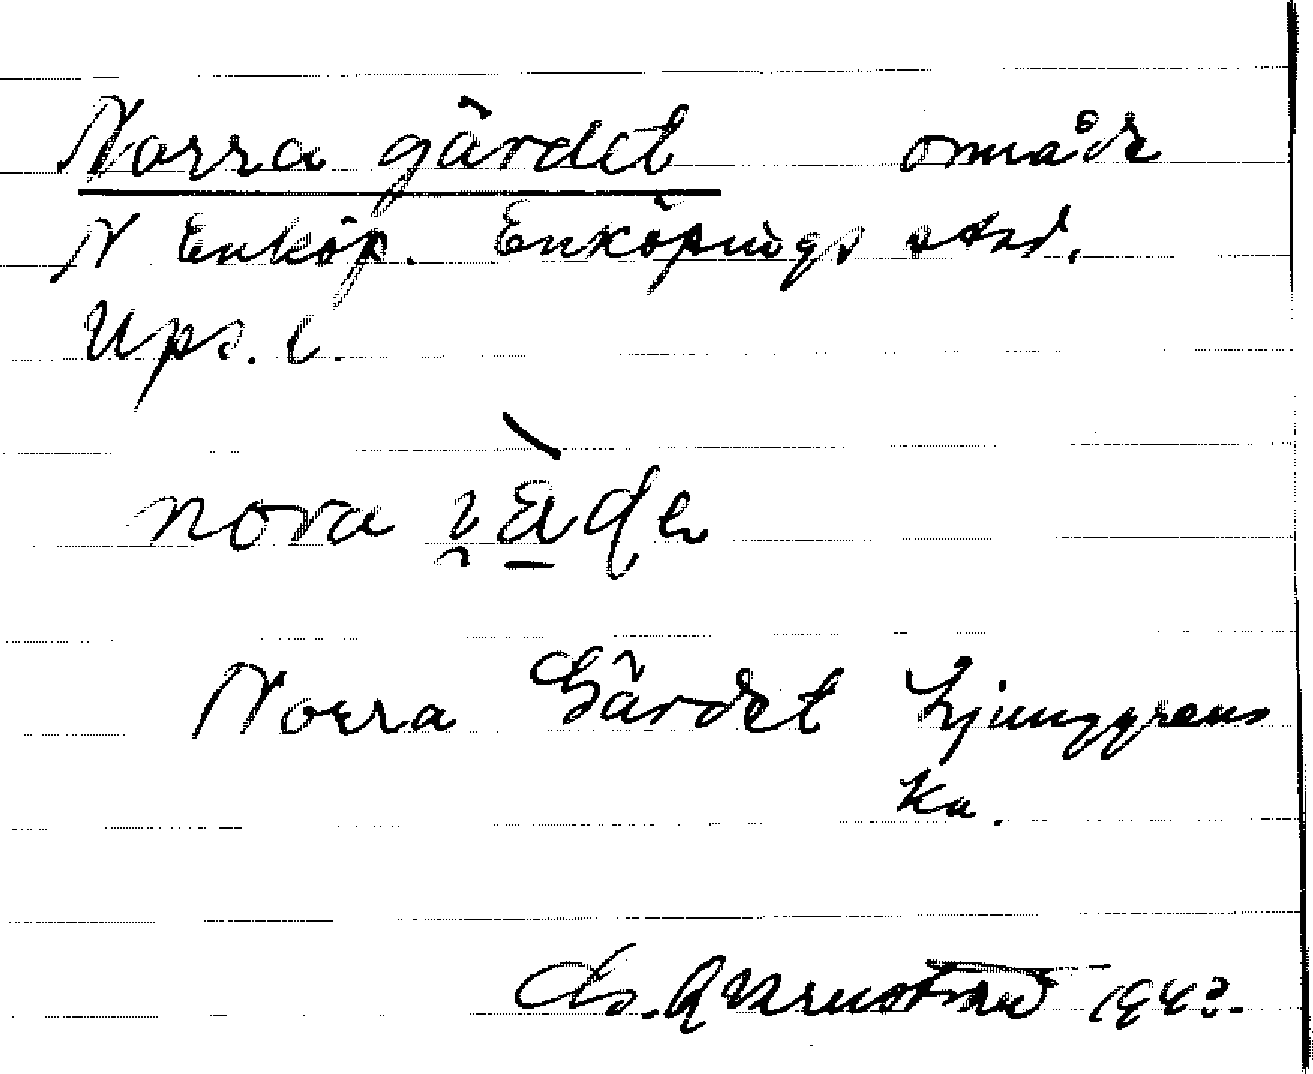 Norra gärdet område
N Enköp. Enköpings stad.
Ups. l.
nora
Norra Gärdet Ljunggrens
Ka.
G. Qvarnström 1943.